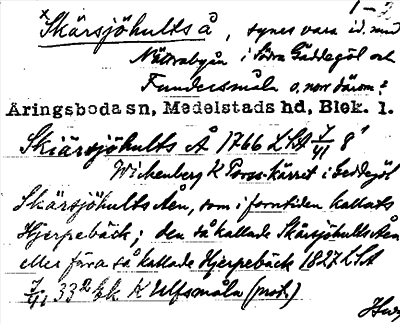 1-2
× Skärsjöhults å, synes vara id. med
Nättrabyån i Södra Gäddegöl och
Fundersmåla o. norr därom?
Äringsboda sn, Medelstads hd, Blek. l.
Skiärsjöhults Å 1766 LSA 7/41 8
Wickenberg K Porss-kärret i Geddegöl
Skärsjöhults Ån, som i forntiden kallats
Hjerpebäck; den så kallade Skärsjöhults Ån
eller förra så kallade Hjerpebäck 1827 LSA
7/41 33 K Ulfsmåla